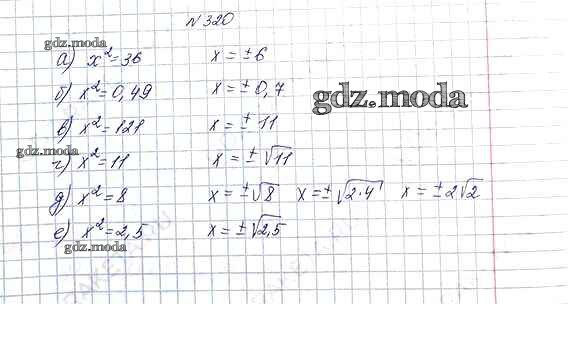 №320
gdz.moda
а) x²=36 x=±6
б) x²=0,49 x=±0,7
gdz.moda
в) x²=121 x=±11
gdz.moda
г) x²=11 x=±√11
д) x²=8 x=±√8 x=±√2·4 x=±2√2
е) x²=2,5 x=±√2,5
gdz.moda